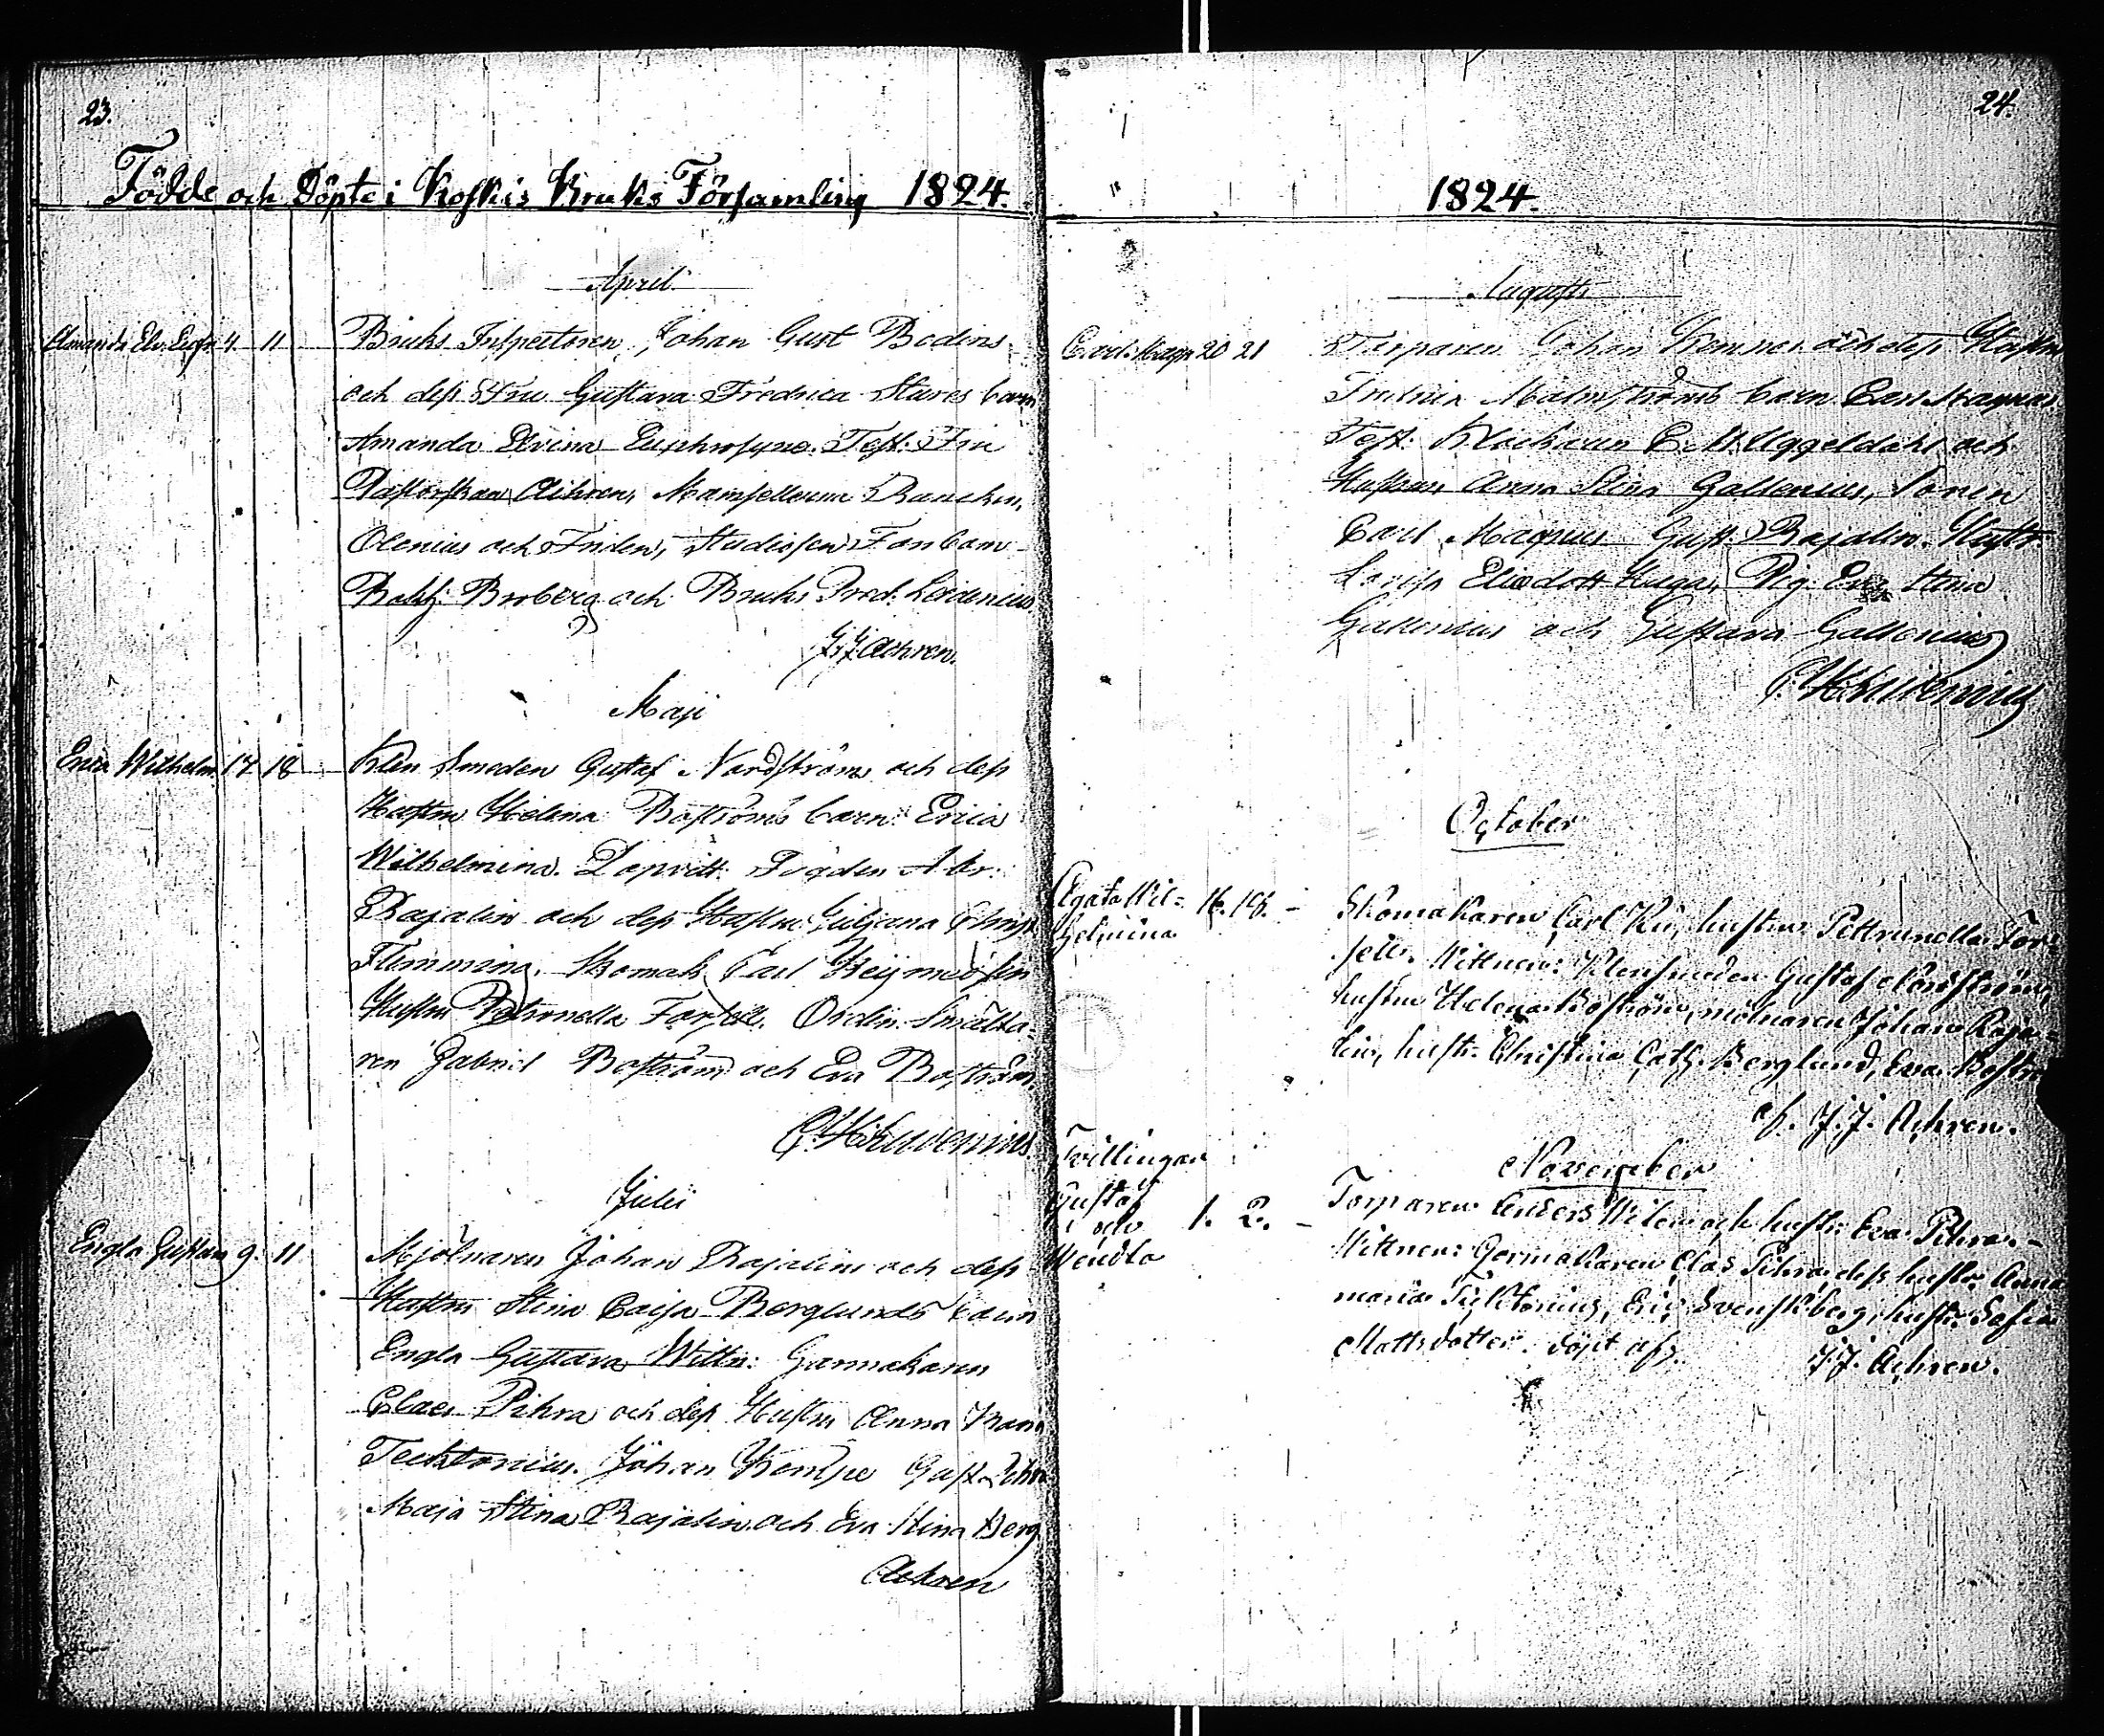 23.
Födde och Döpte i Koskis Bruks Församling 1824.
April
Amanda Elv. Eufr. 4 11
Bruks Inspectoren, Johan Gust Bodins
och dess Fru Gustava Fredrica Stures barn
Amanda Elvina Euphrosyne. Test. Fru
Pastorskan Achren, Mamsellerna
Olenius och Friden, Studiosen
Broberg och Bruks Pred. Leidenius
J.J. Achren.
Maji
Erica Wilhelm. 17 18
Klen Smeden Gustaf Nordström och dess
Hustru Helena Boströms barn: Erica
Wilhelmina. Dopvitt:
Rajalin och dess Hustru Juljana
Flemming. Skomak. Carl
Hustru Petronella Forsell. Ordin. Smälta-
ren Gabriel Boström och Eva Boström
Julii
Engla Gustava 9. 11
Mjölnaren Johan Rajalins och dess
Hustru Stina Caisa Berglunds barn
Engla Gustava Wittn: Garmakaren
Claes Pihra och dess Hustru Anna
Tecktonius. Johan Kempe Gust.
Maja Stina Rajalin och Eva Stina Berg
Achren
24.
1824.
Augusti
Carl Magn. 20 21
Torparen Johan och dess Hustru
Malmströms barn Carl Magnus
Test: Klockaren C. M. Uggeldahl och
Hustrun Anna Stina Gallenius, Sonen
Carl Magnus Gust. Rajalin. Hustr.
Lovisa Eliedott Huga, Pig. Eva Stina
Gallenius och Gustava Gallenius
October
Agata Wil= 16. 18. -
helmina
Skomakaren Carl hustru Pettrunella For-
sell. Wittnen: Klensmeden Gustaf Nordström,
hustru Helena Boström, mölnaren Johan Raja-
lin, hustr. Christina Cath. Berglund, Eva Boström
af. J.J. Achren.
November
Tvillingar
Gustaf
och 1. 2. -
Wendla
Torparen Anders Wilen och hustr. Eva Pihra.-
Wittnen: Garmakaren Clas Pihra dess hustr. Anna
maria Eric Svenskberg, hustr. Safia
Mattsdotter. döpt af J.J. Achren.